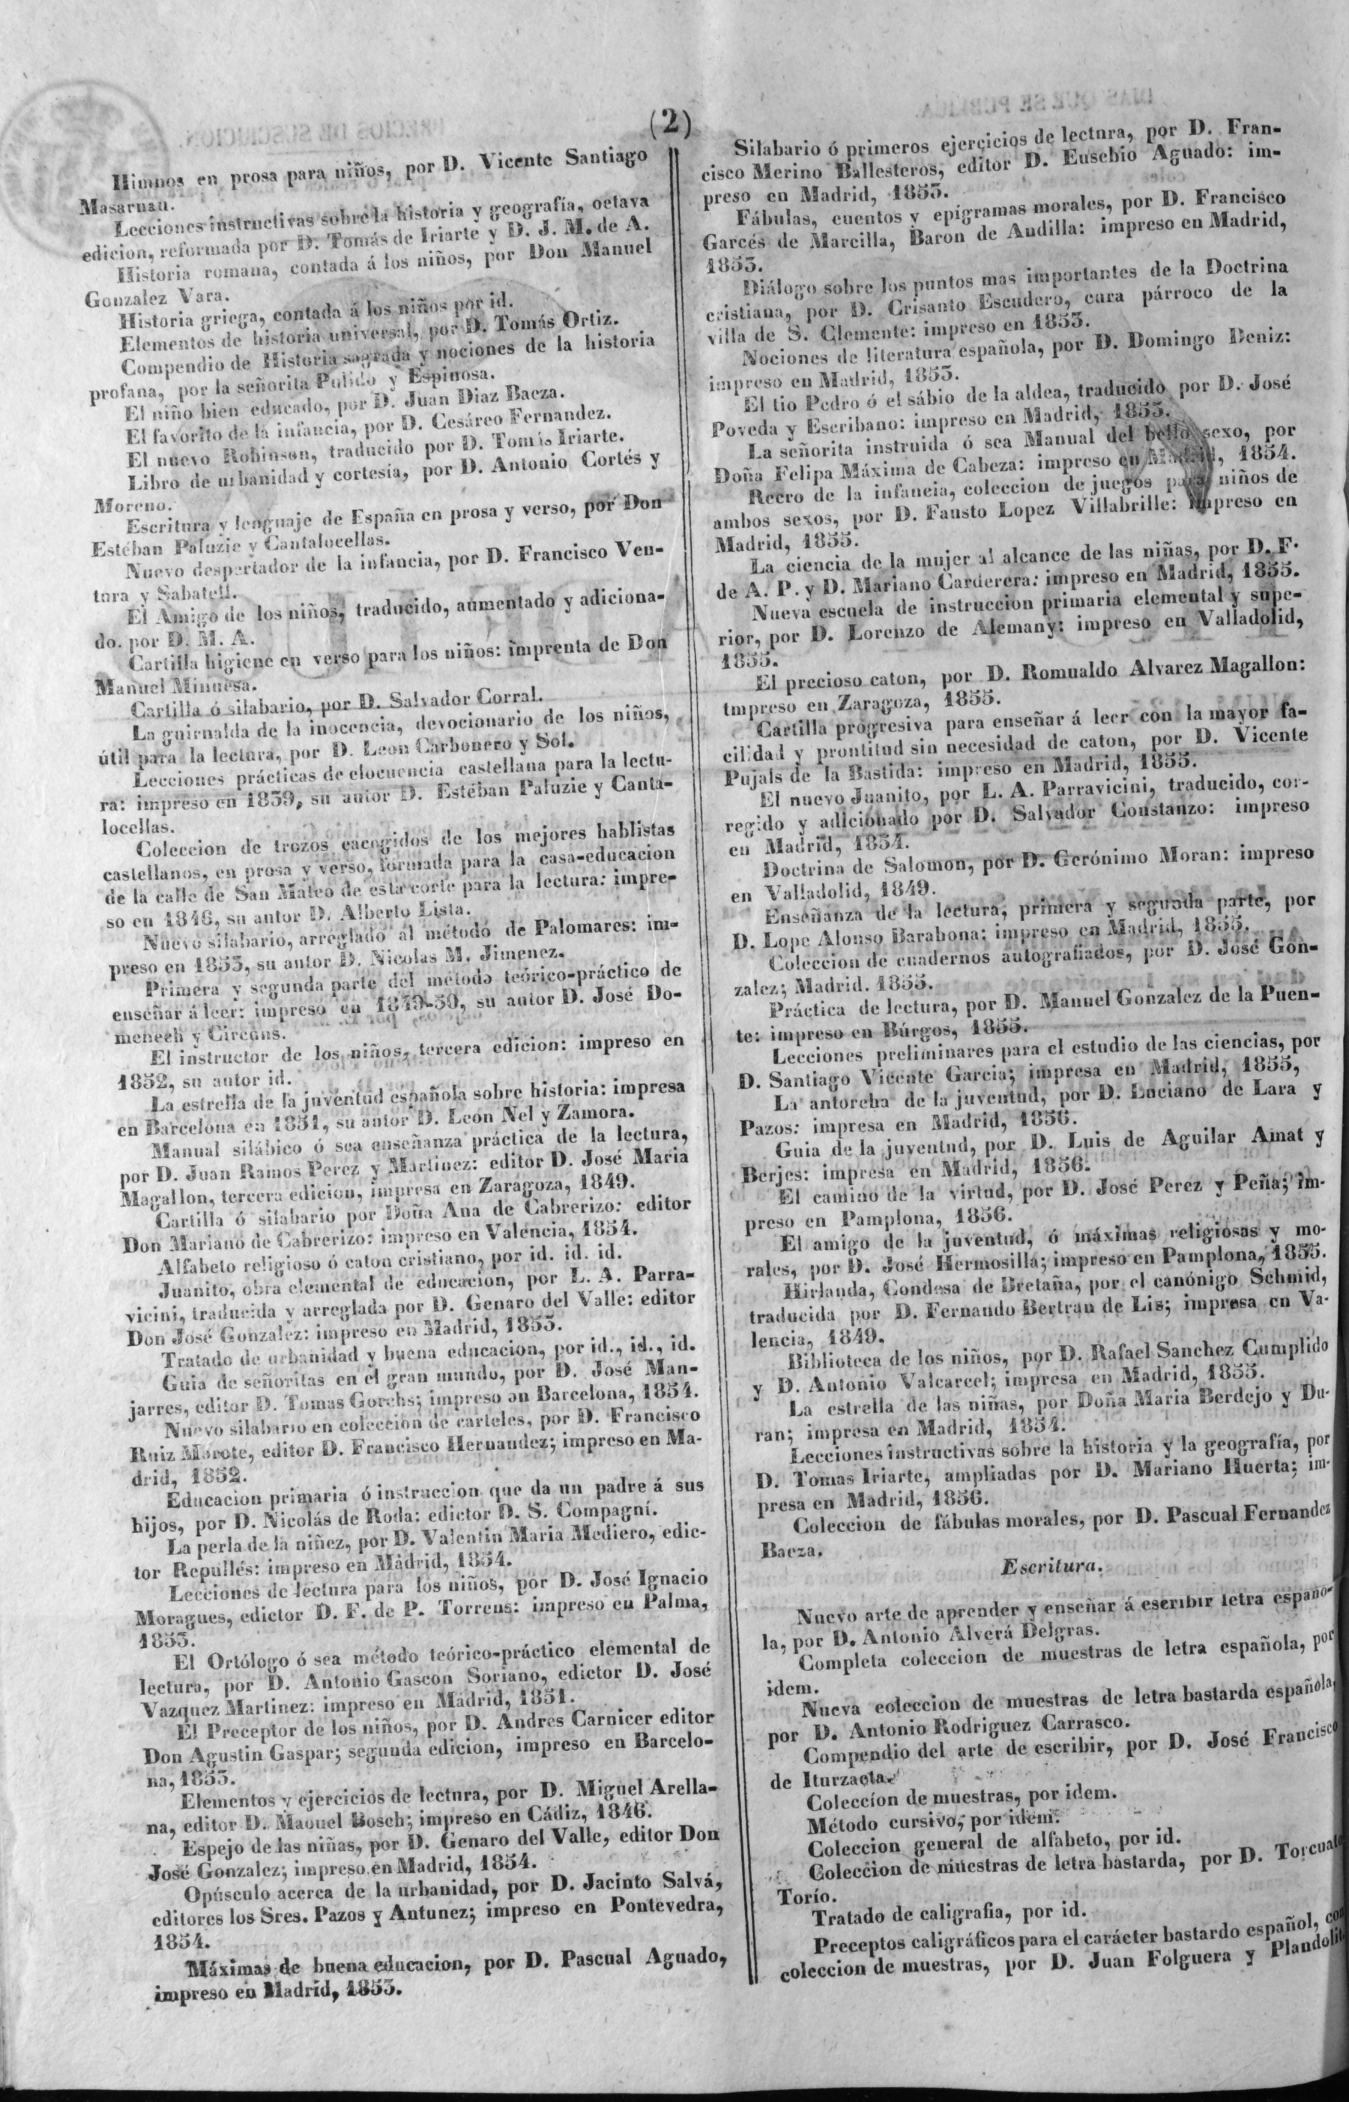 (2)
Himnos en prosa para niños, por D. Vicente Santiago
Masarnau.
Lecciones instructivas sobre la historia y geografía, octava
edicion, reformada por D. Tomás de Iriarte y D. J. M. de A.
Historia romana, contada á los niños, por Don Manuel
Gonzalez Vara.
Historia griega, contada á los niños por id.
Elementos de historia universal, por D. Tomás Ortiz.
Compendio de Historia sagrada y nociones de la historia
profana, por la señorita Pulido y Espinosa.
El niño bien educado, por D. Juan Diaz Baeza.
El favorito de la infancia, por D. Cesáreo Fernandez.
El nuevo Robinson, traducido por D. Tomás Iriarte.
Libro de urbanidad y cortesía, por D. Antonio Cortés y
Moreno.
Escritura y lenguaje de España en prosa y verso, por Don
Estéban Paluzie y Cantalocellas.
Nuevo despertador de la infancia, por D. Francisco Ven-
tura y Sabatell.
El Amigo de los niños, traducido, aumentado y adiciona-
do. por D. M. A.
Cartilla higiene en verso para los niños: imprenta de Don
Manuel Minuesa.
Cartilla ó silabario, por D. Salvador Corral.
La guirnalda de la inocencia, devocionario de los niños,
útil para la lectura, por D. Leon Carbonero y Sol.
Lecciones prácticas de elocuencia castellana para la lectu-
ra: impreso en 1839, su autor D. Estéban Paluzie y Canta-
locellas.
Coleccion de trozos escogidos de los mejores hablistas
castellanos, en prosa y verso, formada para la casa-educacion
de la calle de San Mateo de esta corte para la lectura: impre-
so en 1846, su autor D. Alberto Lista.
Nuevo silabario, arreglado al método de Palomares: im-
preso en 1853, su autor D. Nicolas M. Jimenez.
Primera y segunda parte del método teórico-práctico de
enseñar á leer: impreso en 1849-50, su autor D. José Do-
menech y Circuns.
El instructor de los niños, tercera edicion: impreso en
1852, su autor id.
La estrella de la juventud española sobre historia: impresa
en Barcelona en 1851, su autor D. Leon Nel y Zamora.
Manual silábico ó sea enseñanza práctica de la lectura,
por D. Juan Ramos Perez y Martinez: editor D. José Maria
Magallon, tercera edicion, impresa en Zaragoza, 1849.
Cartilla ó silabario por Doña Ana de Cabrerizo: editor
Don Mariano de Cabrerizo: impreso en Valencia, 1854.
Alfabeto religioso ó caton cristiano, por id. id. id.
Juanito, obra elemental de educacion, por L. A. Parra-
vicini, traducida y arreglada por D. Genaro del Valle: editor
Don José Gonzalez: impreso en Madrid, 1853.
Tratado de urbanidad y buena educacion, por id., id., id.
Guia de señoritas en el gran mundo, por D. José Man-
jarres, editor D. Tomas Gorchs; impreso en Barcelona, 1854.
Nuevo silabario en coleccion de carteles, por D. Francisco
Ruiz Morote, editor D. Francisco Hernandez; impreso en Ma-
drid, 1852.
Educacion primaria ó instruccion que da un padre á sus
hijos, por D. Nicolás de Roda: edictor D. S. Compagní.
La perla de la niñez, por D. Valentin Maria Mediero, edic-
tor Repullés: impreso en Madrid, 1854.
Lecciones de lectura para los niños, por D. José Ignacio
Moragues, edictor D. F. de P. Torrens: impreso en Palma,
1853.
El Ortólogo ó sea método teórico-práctico elemental de
lectura, por D. Antonio Gascon Soriano, edictor D. José
Vazquez Martinez: impreso en Madrid, 1851.
El Preceptor de los niños, por D. Andres Carnicer editor
Don Agustin Gaspar; segunda edicion, impreso en Barcelo-
na, 1853.
Elementos y ejercicios de lectura, por D. Miguel Arella-
na, editor D. Manuel Bosch; impreso en Cádiz, 1846.
Espejo de las niñas, por D. Genaro del Valle, editor Don
José Gonzalez; impreso en Madrid, 1854.
Opúsculo acerca de la urbanidad, por D. Jacinto Salvá,
editores los Sres. Pazos y Antunez; impreso en Pontevedra,
1854.
Máximas de buena educacion, por D. Pascual Aguado,
impreso en Madrid, 1853.
Silabario ó primeros ejercicios de lectura, por D. Fran-
cisco Merino Ballesteros, editor D. Eusebio Aguado: im-
preso en Madrid, 1853.
Fábulas, cuentos y epígramas morales, por D. Francisco
Garcés de Marcilla, Baron de Andilla: impreso en Madrid,
1853.
Diálogo sobre los puntos mas importantes de la Doctrina
cristiana, por D. Crisanto Escudero, cura párroco de la
villa de S. Clemente: impreso en 1853.
Nociones de literatura española, por D. Domingo Deniz:
impreso en Madrid, 1853.
El tio Pedro ó el sábio de la aldea, traducido por D. José
Poveda y Escribano: impreso en Madrid, 1853.
La señorita instruida ó sea Manual del bello sexo, por
Doña Felipa Máxima de Cabeza: impreso en Madrid, 1854.
Recro de la infancia, coleccion de juegos para niños de
ambos sexos, por D. Fausto Lopez Villabrille: impreso en
Madrid, 1855.
La ciencia de la mujer al alcance de las niñas, por D. F.
de A. P. y D. Mariano Carderera: impreso en Madrid, 1855.
Nueva escuela de instruccion primaria elemental y supe-
rior, por D. Lorenzo de Alemany: impreso en Valladolid,
1855.
El precioso caton, por D. Romualdo Alvarez Magallon:
tmpreso en Zaragoza, 1855.
Cartilla progresiva para enseñar á leer con la mayor fa-
cilidad y prontitud sin necesidad de caton, por D. Vicente
Pujals de la Bastida: impreso en Madrid, 1855.
El nuevo Juanito, por L. A. Parravicini, traducido, cor-
regido y adicionado por D. Salvador Constanzo: impreso
en Madrid, 1854.
Doctrina de Salomon, por D. Gerónimo Moran: impreso
en Valladolid, 1849.
Enseñanza de la lectura, primera y segunda parte, por
D. Lope Alonso Barahona: impreso en Madrid, 1855.
Coleccion de cuadernos autografiados, por D. José Gon-
zalez; Madrid. 1855.
Práctica de lectura, por D. Manuel Gonzalez de la Puen-
te: impreso en Búrgos, 1855.
Lecciones preliminares para el estudio de las ciencias, por
D. Santiago Vicente Garcia; impresa en Madrid, 1855,
La antorcha de la juventud, por D. Luciano de Lara y
Pazos: impresa en Madrid, 1856.
Guia de la juventud, por D. Luis de Aguilar Amat y
Berjes: impresa en Madrid, 1856.
El camino de la virtud, por D. José Perez y Peña; im-
preso en Pamplona, 1856.
El amigo de la juventud, ó máximas religiosas y mo-
rales, por D. José Hermosilla; impreso en Pamplona, 1855.
Hirlanda, Condesa de Bretaña, por el canónigo Schmid,
traducida por D. Fernando Bertran de Lis; impresa en Va-
lencia, 1849.
Biblioteca de los niños, por D. Rafael Sanchez Cumplido
y D. Antonio Valcarcel; impresa en Madrid, 1855.
La estrella de las niñas, por Doña Maria Berdejo y Du-
ran; impresa en Madrid, 1854.
Lecciones instructivas sobre la historia y la geografía, por
D. Tomas Iriarte, ampliadas por D. Mariano Huerta; im-
presa en Madrid, 1856.
Coleccion de fábulas morales, por D. Pascual Fernandez
Baeza.
Escritura.
Nuevo arte de aprender y enseñar á escribir letra españo-
la, por D. Antonio Alverá Delgras.
Completa coleccion de muestras de letra española, por
idem.
Nueva coleccion de muestras de letra bastarda española,
por D. Antonio Rodriguez Carrasco.
Compendio del arte de escribir, por D. José Francisco
de Iturzaeta.
Coleccíon de muestras, por idem.
Método cursivo, por idem.
Coleccion general de alfabeto, por id.
Coleccion de muestras de letra bastarda, por D. Torcuato
Torío.
Tratado de caligrafia, por id.
Preceptos caligráficos para el carácter bastardo español, con
coleccion de muestras, por D. Juan Folguera y